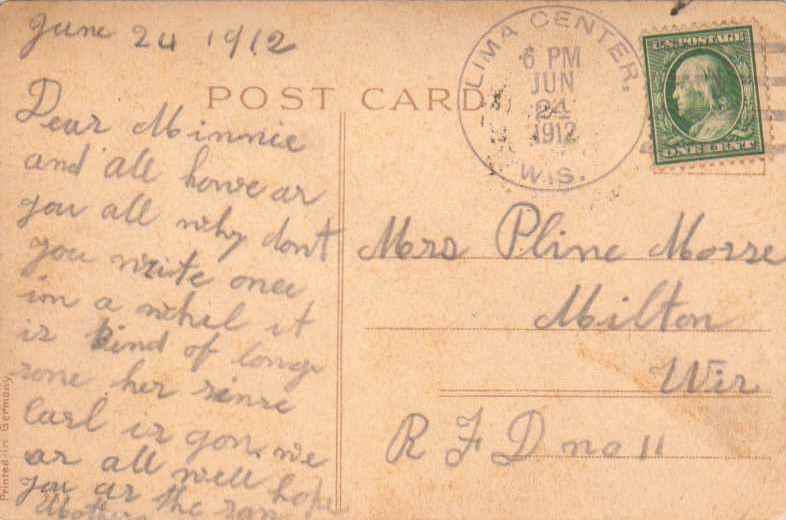 June 24 1912
POST CARD
LIMA CENTER.
6 PM
JUN
24
1912
WIS.
U.S. POSTAGE
ONE CENT
Dear Minnie
and all howe ar
you all why dont
you write once
in a whil it
is kind of long
sone her sinse
Carl is gon we
ar all well hope
you ar the sam
Mother
Mrs Pline Morse
Milton
Wis
R F D no 11
Printed in Germany